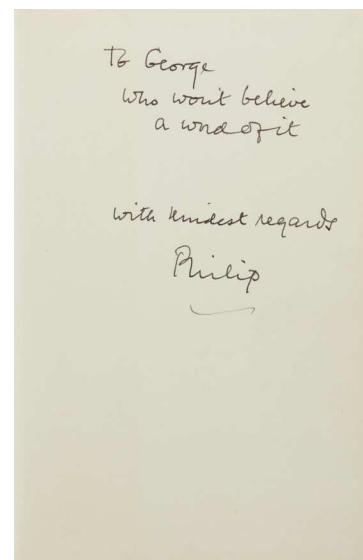 To George
who won't believe
a word of it
with kindest regards
Philip